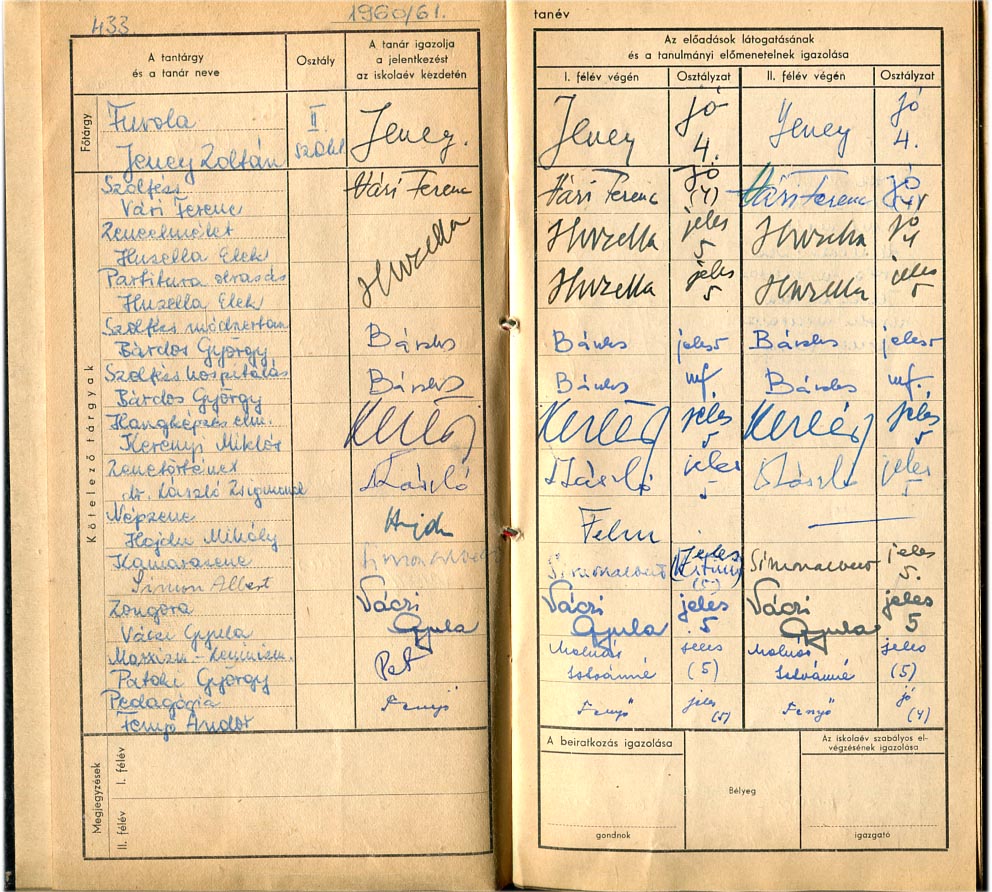 433
1960/61.
tanév
A tantárgy
és a tanár neve
Osztály
A tanár igazolja
a jelentkezést
az iskolaév kezdetén
Az előadások látogatásának
és a tanulmányi előmenetelnek igazolása
I. félév végén
Osztályzat
II. félév végén
Osztályzat
Főtárgy
Fuvola
Jeney Zoltán
II
Jeney.
Jeney
jó
4.
Jeney
jó
4.
Kötelező tárgyak
Szolfézs
Vári Ferenc
Vári Ferenc
Vári Ferenc
jó
(4)
Vári Ferenc
jó
Zeneelmélet
Huzella Elek
Huzella
Huzella
jeles
5
Huzella
jó
4
Partitura olvasás
Huzella Elek
Huzella
jeles
5
Huzella
jeles
5
Szolfézs módszertan
Bárdos György
Bárdos
Bárdos
jeles 5
Bárdos
jeles 5
Szolfézs hospitálás
Bárdos György
Bárdos
Bárdos
mf.
Bárdos
mf.
Hangképzés elm.
Kerényi Miklós
jeles
5
jeles
5
Zenetörténet
dr. László Zsigmond
László
László
jeles
5
László
jeles
5
Népzene
Hajdu Mihály
Hajdu
Felm
Kamarazene
Simon Albert
Simonalbert
Simonalbert
jeles
(5)
Simonalbert
jeles
5.
Zongora
Váczi Gyula
Váczi
Gyula
Váczi
Gyula
jeles
5
Váczi
Gyula
jeles
5
Marxizm-Leninizm.
Pataki György
Pat
Molnár
Istvánné
jeles
(5)
Molnár
Istvánné
jeles
(5)
Pedagógia
Fenyő Andor
Fenyő
Fenyő
jeles
(5)
Fenyő
jó
(4)
Megjegyzések
I. félév
II. félév
A beiratkozás igazolása
gondnok
Bélyeg
Az iskolaév szabályos el-
végzésének igazolása
igazgató